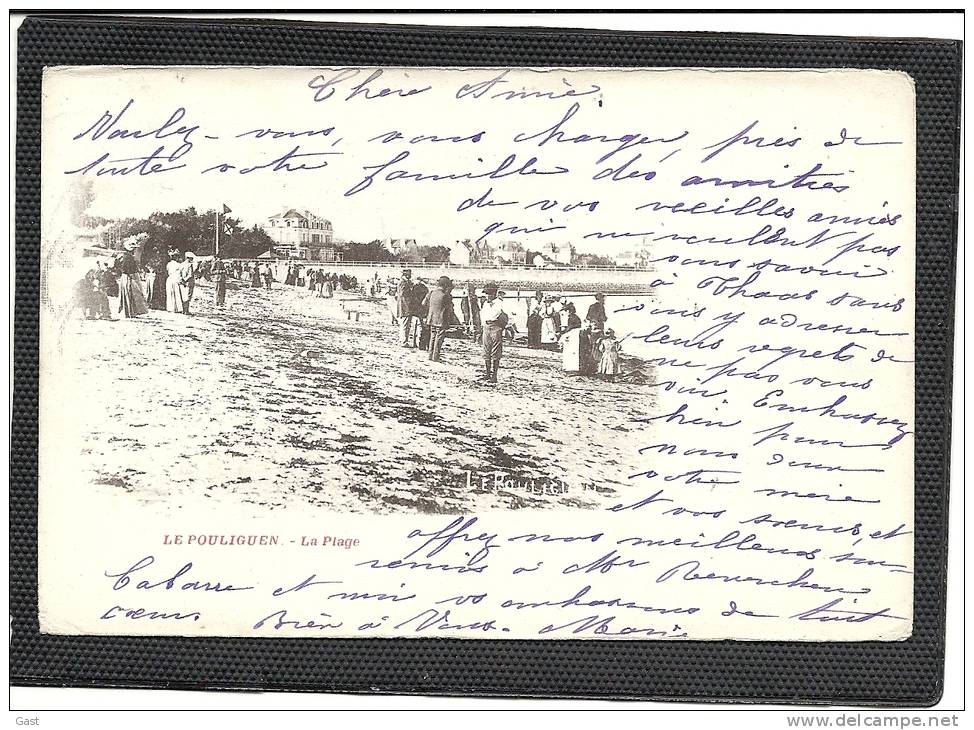 Chère Amie.
Voulez-vous, vous charger, près de
toute votre famille des amitiés
de vos vieilles amies
qui ne veulent pas
vous savoir
à Thoas sans
vous y adresser
leurs regrets de
ne pas vous
voir. Embrassez
bien pour
nous deux
votre mère
et vos sœurs, et
offrez nos meilleurs sou-
LE POULIGUEN
LE POULIGUEN. - La Plage
venirs à Mr
et moi vs embrassons de tout
cœur. Bien à Vous. Marie
Gast
delcampe.net